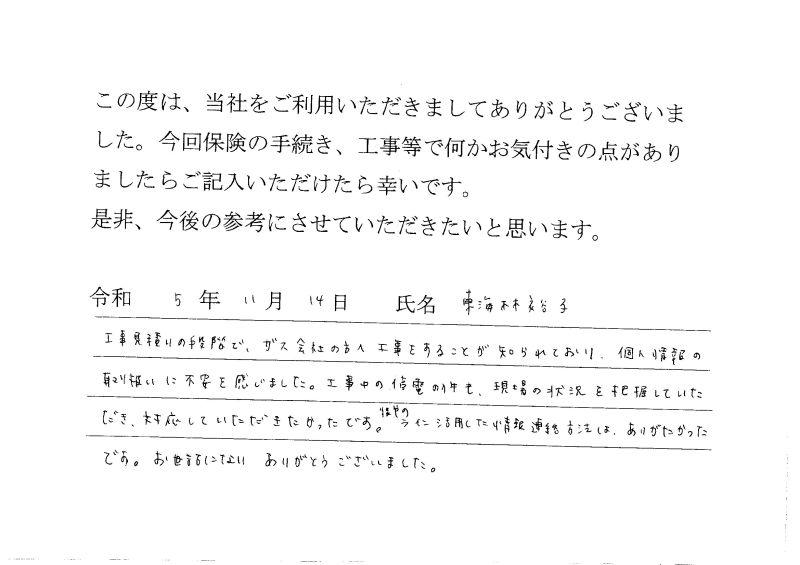 この度は、当社をご利用いただきましてありがとうございま
した。今回保険の手続き、工事等で何かお気付きの点があり
ましたらご記入いただけたら幸いです。
是非、今後の参考にさせていただきたいと思います。
令和 5 年 11 月 14 日 氏名 東海林裕子
工事見積りの段階で、ガス会社の方へ工事をすることが知られており、個人情報の
取り扱いに不安を感じました。工事中の停電の件も、現場の状況を把握していた
だき、対応していただきたかったです。ライン活用した情報連絡方法は、ありがたかった
です。お世話になり ありがとうございました。